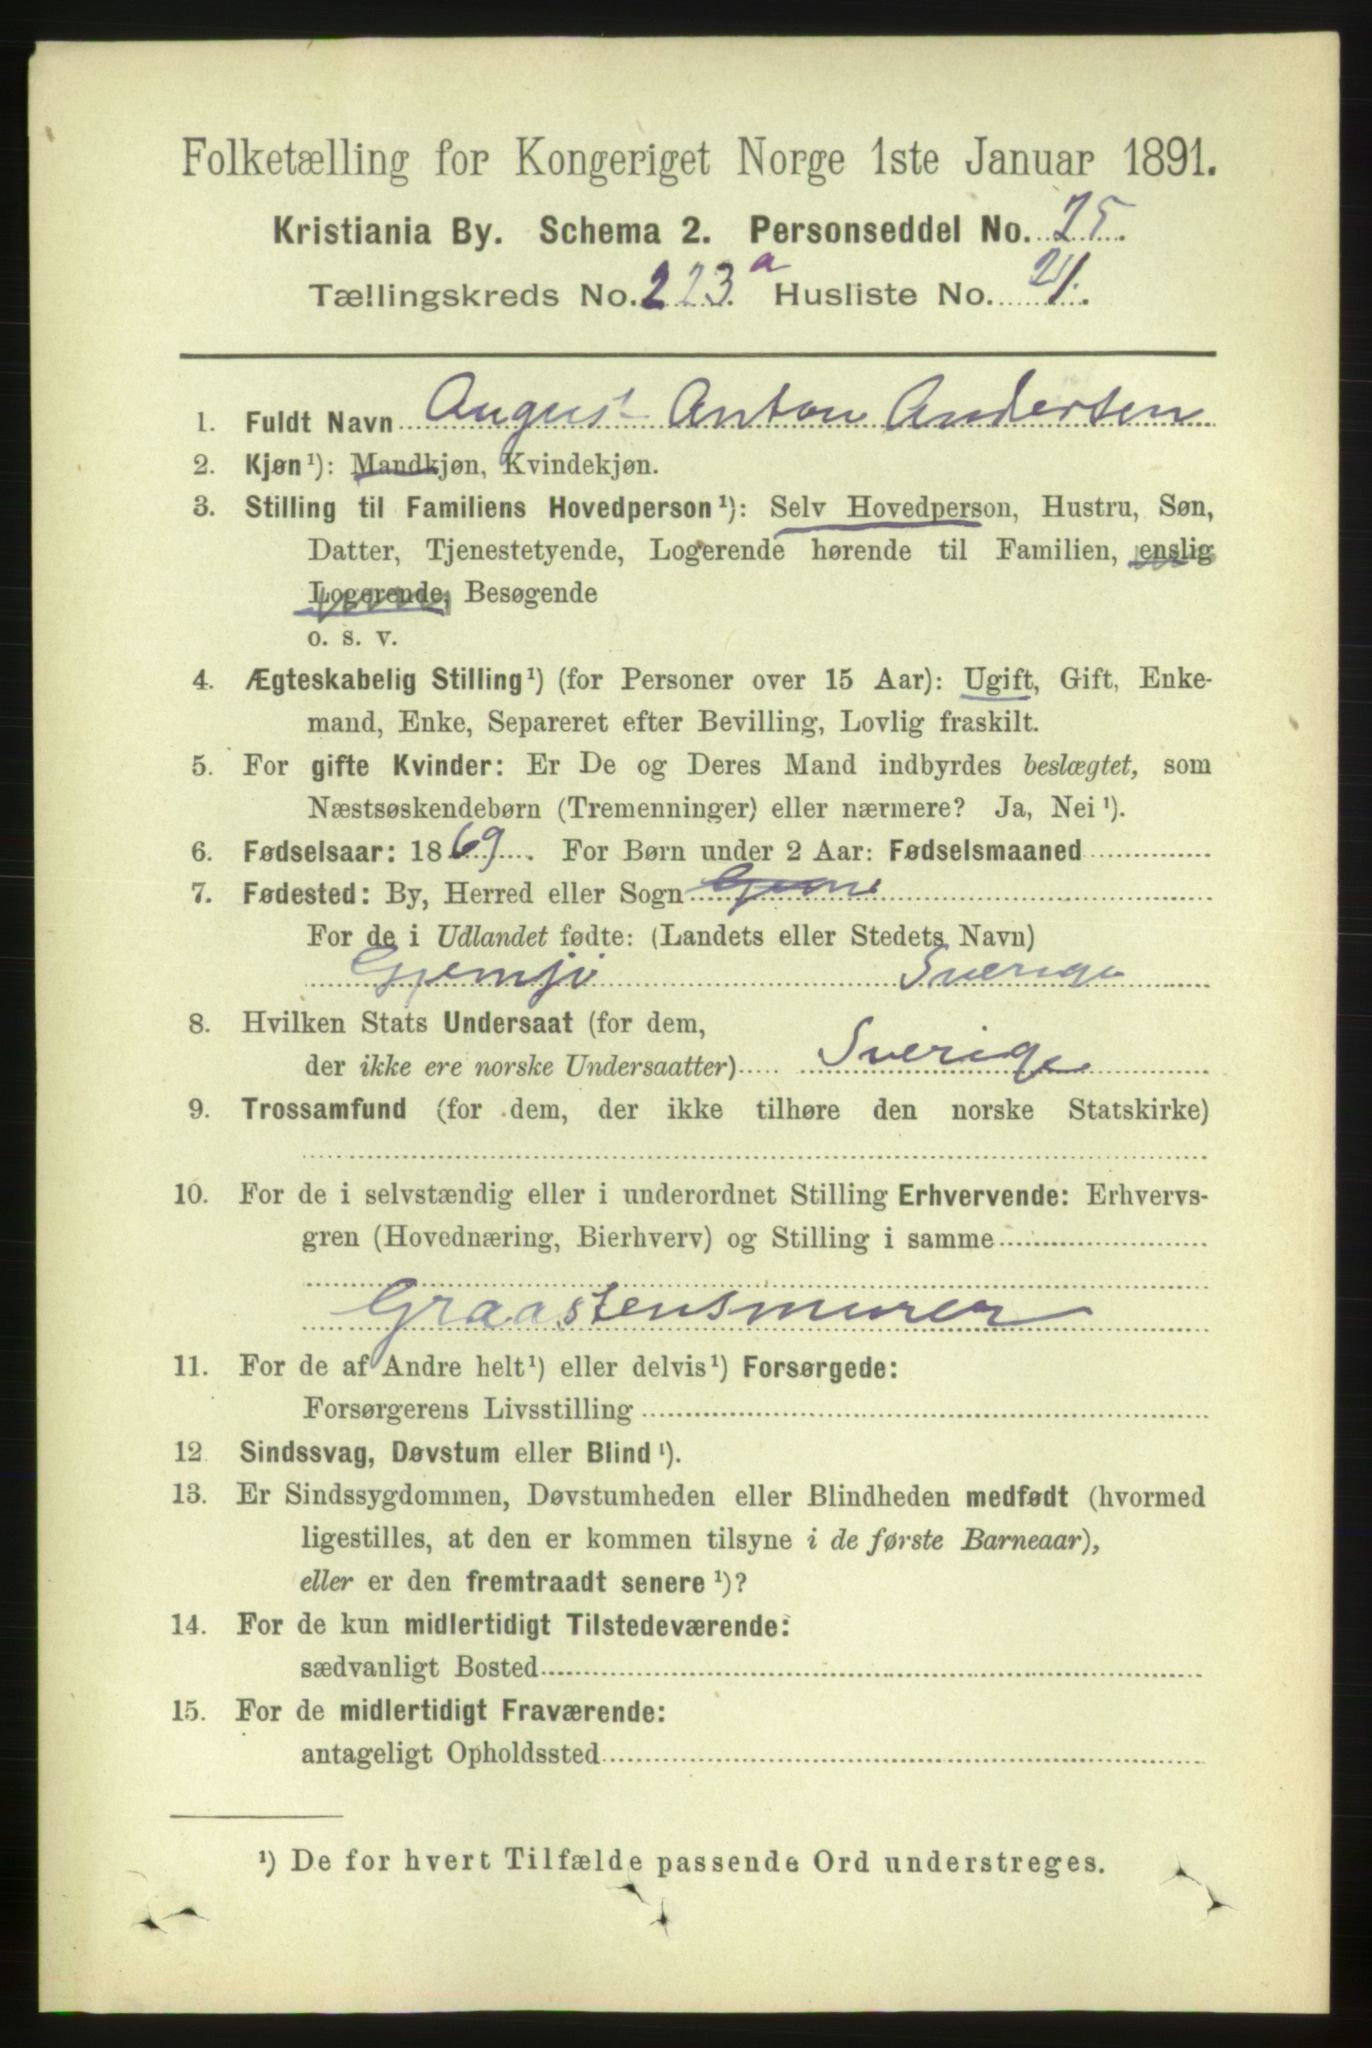 Folketælling for Kongeriget Norge 1ste Januar 1891.
Kristiania By. Schema 2. Personseddel No. 25.
Tællingskreds No. 223.a Husliste No. 21.
1. Fuldt Navn August Anton Andersen
2. Kjøn¹): Mandkjøn, Kvindekjøn.
3. Stilling til Familiens Hovedperson¹): Selv Hovedperson, Hustru, Søn,
Datter, Tjenestetyende, Logerende hørende til Familien, enslig
Logerende, Besøgende
o. s. v.
4. Ægteskabelig Stilling¹) (for Personer over 15 Aar): Ugift, Gift, Enke-
mand, Enke, Separeret efter Bevilling, Lovlig fraskilt.
5. For gifte Kvinder: Er De og Deres Mand indbyrdes beslægtet, som
Næstsøskendebørn (Tremenninger) eller nærmere? Ja, Nei¹).
6. Fødselsaar: 1869. For Børn under 2 Aar: Fødselsmaaned
7. Fødested: By, Herred eller Sogn
For de i Udlandet fødte: (Landets eller Stedets Navn)
Sverige
8. Hvilken Stats Undersaat (for dem,
der ikke ere norske Undersaatter) Sverige
9. Trossamfund (for dem, der ikke tilhøre den norske Statskirke)
10. For de i selvstændig eller i underordnet Stilling Erhvervende: Erhvervs-
gren (Hovednæring, Bierhverv) og Stilling i samme
Graastensmurer
11. For de af Andre helt¹) eller delvis¹) Forsørgede:
Forsørgerens Livsstilling
12 Sindssvag, Døvstum eller Blind¹).
13. Er Sindssygdommen, Døvstumheden eller Blindheden medfødt (hvormed
ligestilles, at den er kommen tilsyne i de første Barneaar),
eller er den fremtraadt senere¹)?
14. For de kun midlertidigt Tilstedeværende:
sædvanligt Bosted
15. For de midlertidigt Fraværende:
antageligt Opholdssted
¹) De for hvert Tilfælde passende Ord understreges.